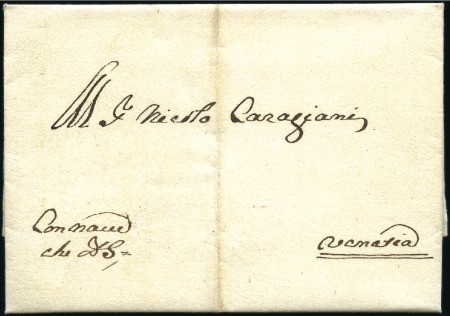 Nicolo Caragiani
Con nave
che DS=
Venetia